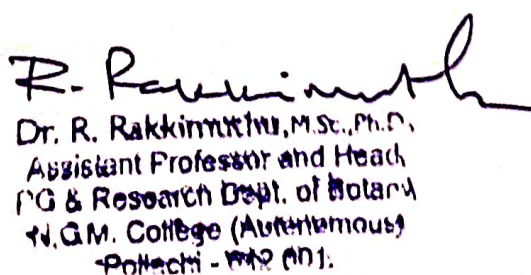 R. Rakkimuthu
Dr. R. Rakkimuthu, M.Sc., Ph.D.,
Assistant Professor and Head,
PG & Research Dept. of Botany
N.G.M. College (Autonomous)
Pollachi - 642 001.